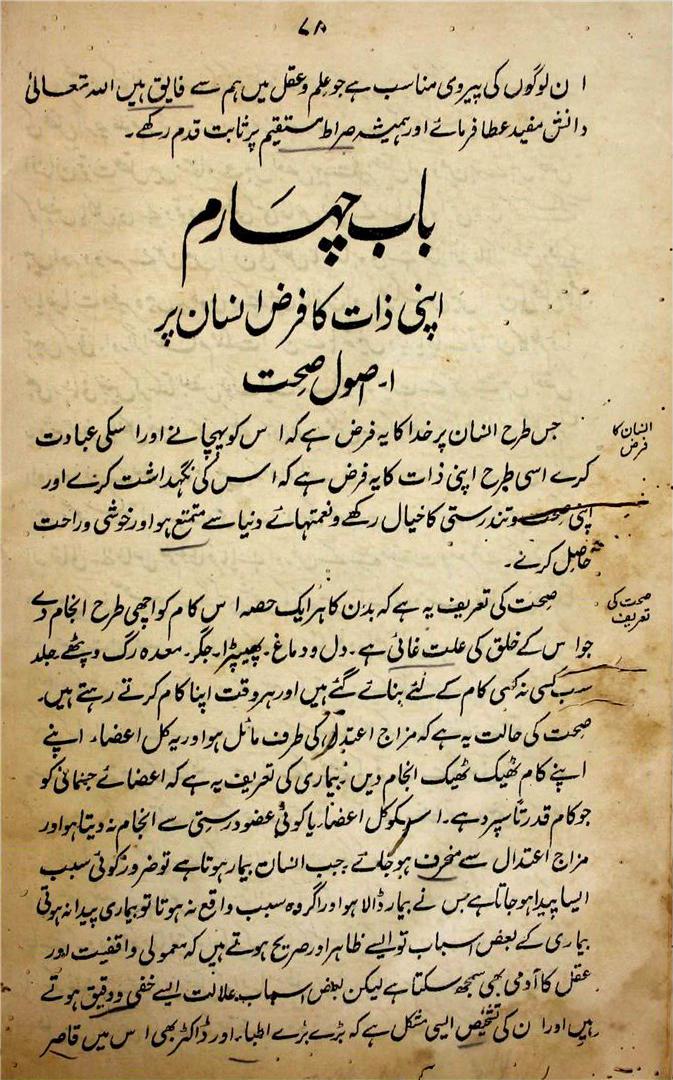 ۷۸
ان لوگوں کی پیروی مناسب ہے جو علم و عقل میں ہم سے فایق ہیں اللہ تعالیٰ
دانش مفید عطا فرمائے اور ہمیشہ صراط مستقیم پر ثابت قدم رکھے۔
باب چہارم
اپنی ذات کا فرض انسان پر
۱۔ اصول صحت
انسان کا
فرض
جس طرح انسان پر خدا کا یہ فرض ہے کہ اس کو پہچانے اور اسکی عبادت
کرے اسی طرح اپنی ذات کا یہ فرض ہے کہ اس کی نگہداشت کرے اور
اپنی صحت و تندرستی کا خیال رکھے و نعمتہائے دنیا سے متمتع ہو اور خوشی و راحت
حاصل کرنے۔
صحت کی
تعریف
صحت کی تعریف یہ ہے کہ بدن کا ہر ایک حصہ اس کام کو اچھی طرح انجام دے
جو اس کے خلق کی علت غائی ہے۔ دل و دماغ۔ پھیپڑا۔ جگر۔ معدہ رگ و پٹھے جلد
سب کسی نہ کسی کام کے لئے بنائے گئے ہیں اور ہر وقت اپنا کام کرتے رہتے ہیں۔
صحت کی حالت یہ ہے کہ مزاج اعتدال کی طرف مائل ہو اور یہ کل اعضاء اپنے
اپنے کام ٹھیک ٹھیک انجام دیں۔ بیماری کی تعریف یہ ہے کہ اعضائے جسمانی کو
جو کام قدرتاً سپرد ہے۔ اسکو کل اعضاء یا کوئی عضو درستی سے انجام نہ دیتا ہو اور
مزاج اعتدال سے منحرف ہو جائے۔ جب انسان بیمار ہوتا ہے تو ضرور کوئی سبب
ایسا پیدا ہو جاتا ہے جس نے بیمار ڈالا ہو اور اگر وہ سبب واقع نہ ہوتا تو بیماری پیدا نہ ہوتی
بیماری کے بعض اسباب تو ایسے ظاہر اور صریح ہوتے ہیں کہ معمولی واقفیت اور
عقل کا آدمی بھی سمجھ سکتا ہے لیکن بعض اسباب علالت ایسے خفی و دقیق ہوتے
ہیں اور ان کی تشخیص ایسی مشکل ہے کہ بڑے بڑے اطباء۔ اور ڈاکٹر بھی اس میں قاصر